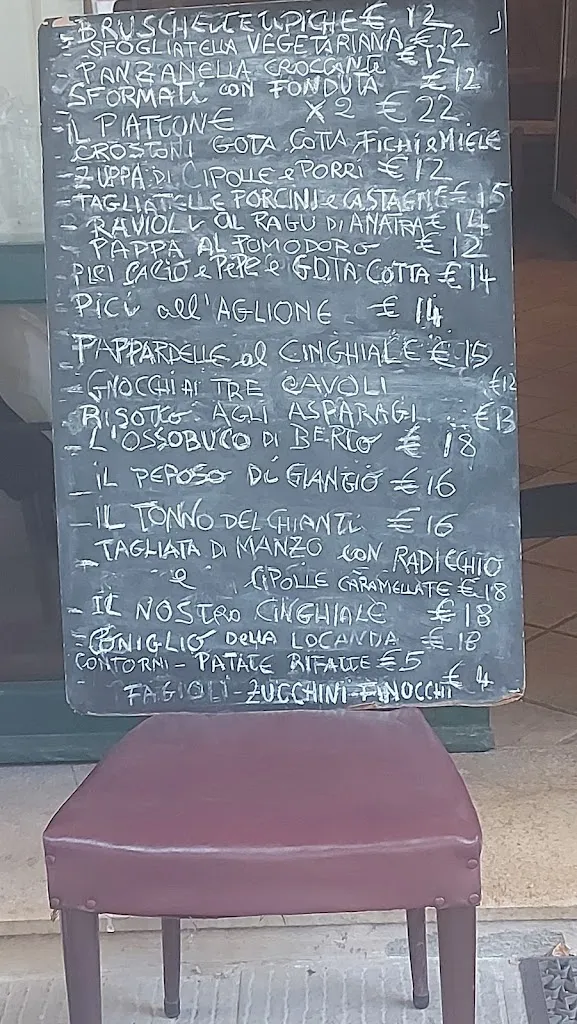 - BRUSCHETTE TIPICHE € 12
- SFOGLIATELLA VEGETARIANA € 12
- PANZANELLA CROCCANTE € 12
SFORMATI CON FONDUTA € 12
- IL PIATTONE X 2 € 22
CROSTONI GOTA COTTA FICHI e MIELE
- ZUPPA DI CIPOLLE e PORRI € 12
- TAGLIATELLE PORCINI e CASTAGNE € 15
- RAVIOLI AL RAGU DI ANATRA € 14
- PAPPA AL POMODORO € 12
- PICI CACIO e PEPE e GOTA COTTA € 14
PICI all'AGLIONE € 14
- PAPPARDELLE al CINGHIALE € 15
- GNOCCHI AI TRE CAVOLI € 12
- RISOTTO AGLI ASPARAGI € 13
- L'OSSOBUCO DI BERTO € 18
- IL PEPOSO DI GIANGIO € 16
- IL TONNO DEL CHIANTI € 16
- TAGLIATA DI MANZO CON RADICCHIO
e CIPOLLE CARAMELLATE € 18
- IL NOSTRO CINGHIALE € 18
- CONIGLIO DELLA LOCANDA € 18
CONTORNI - PATATE RIFATTE € 5
FAGIOLI - ZUCCHINI - FINOCCHI € 4